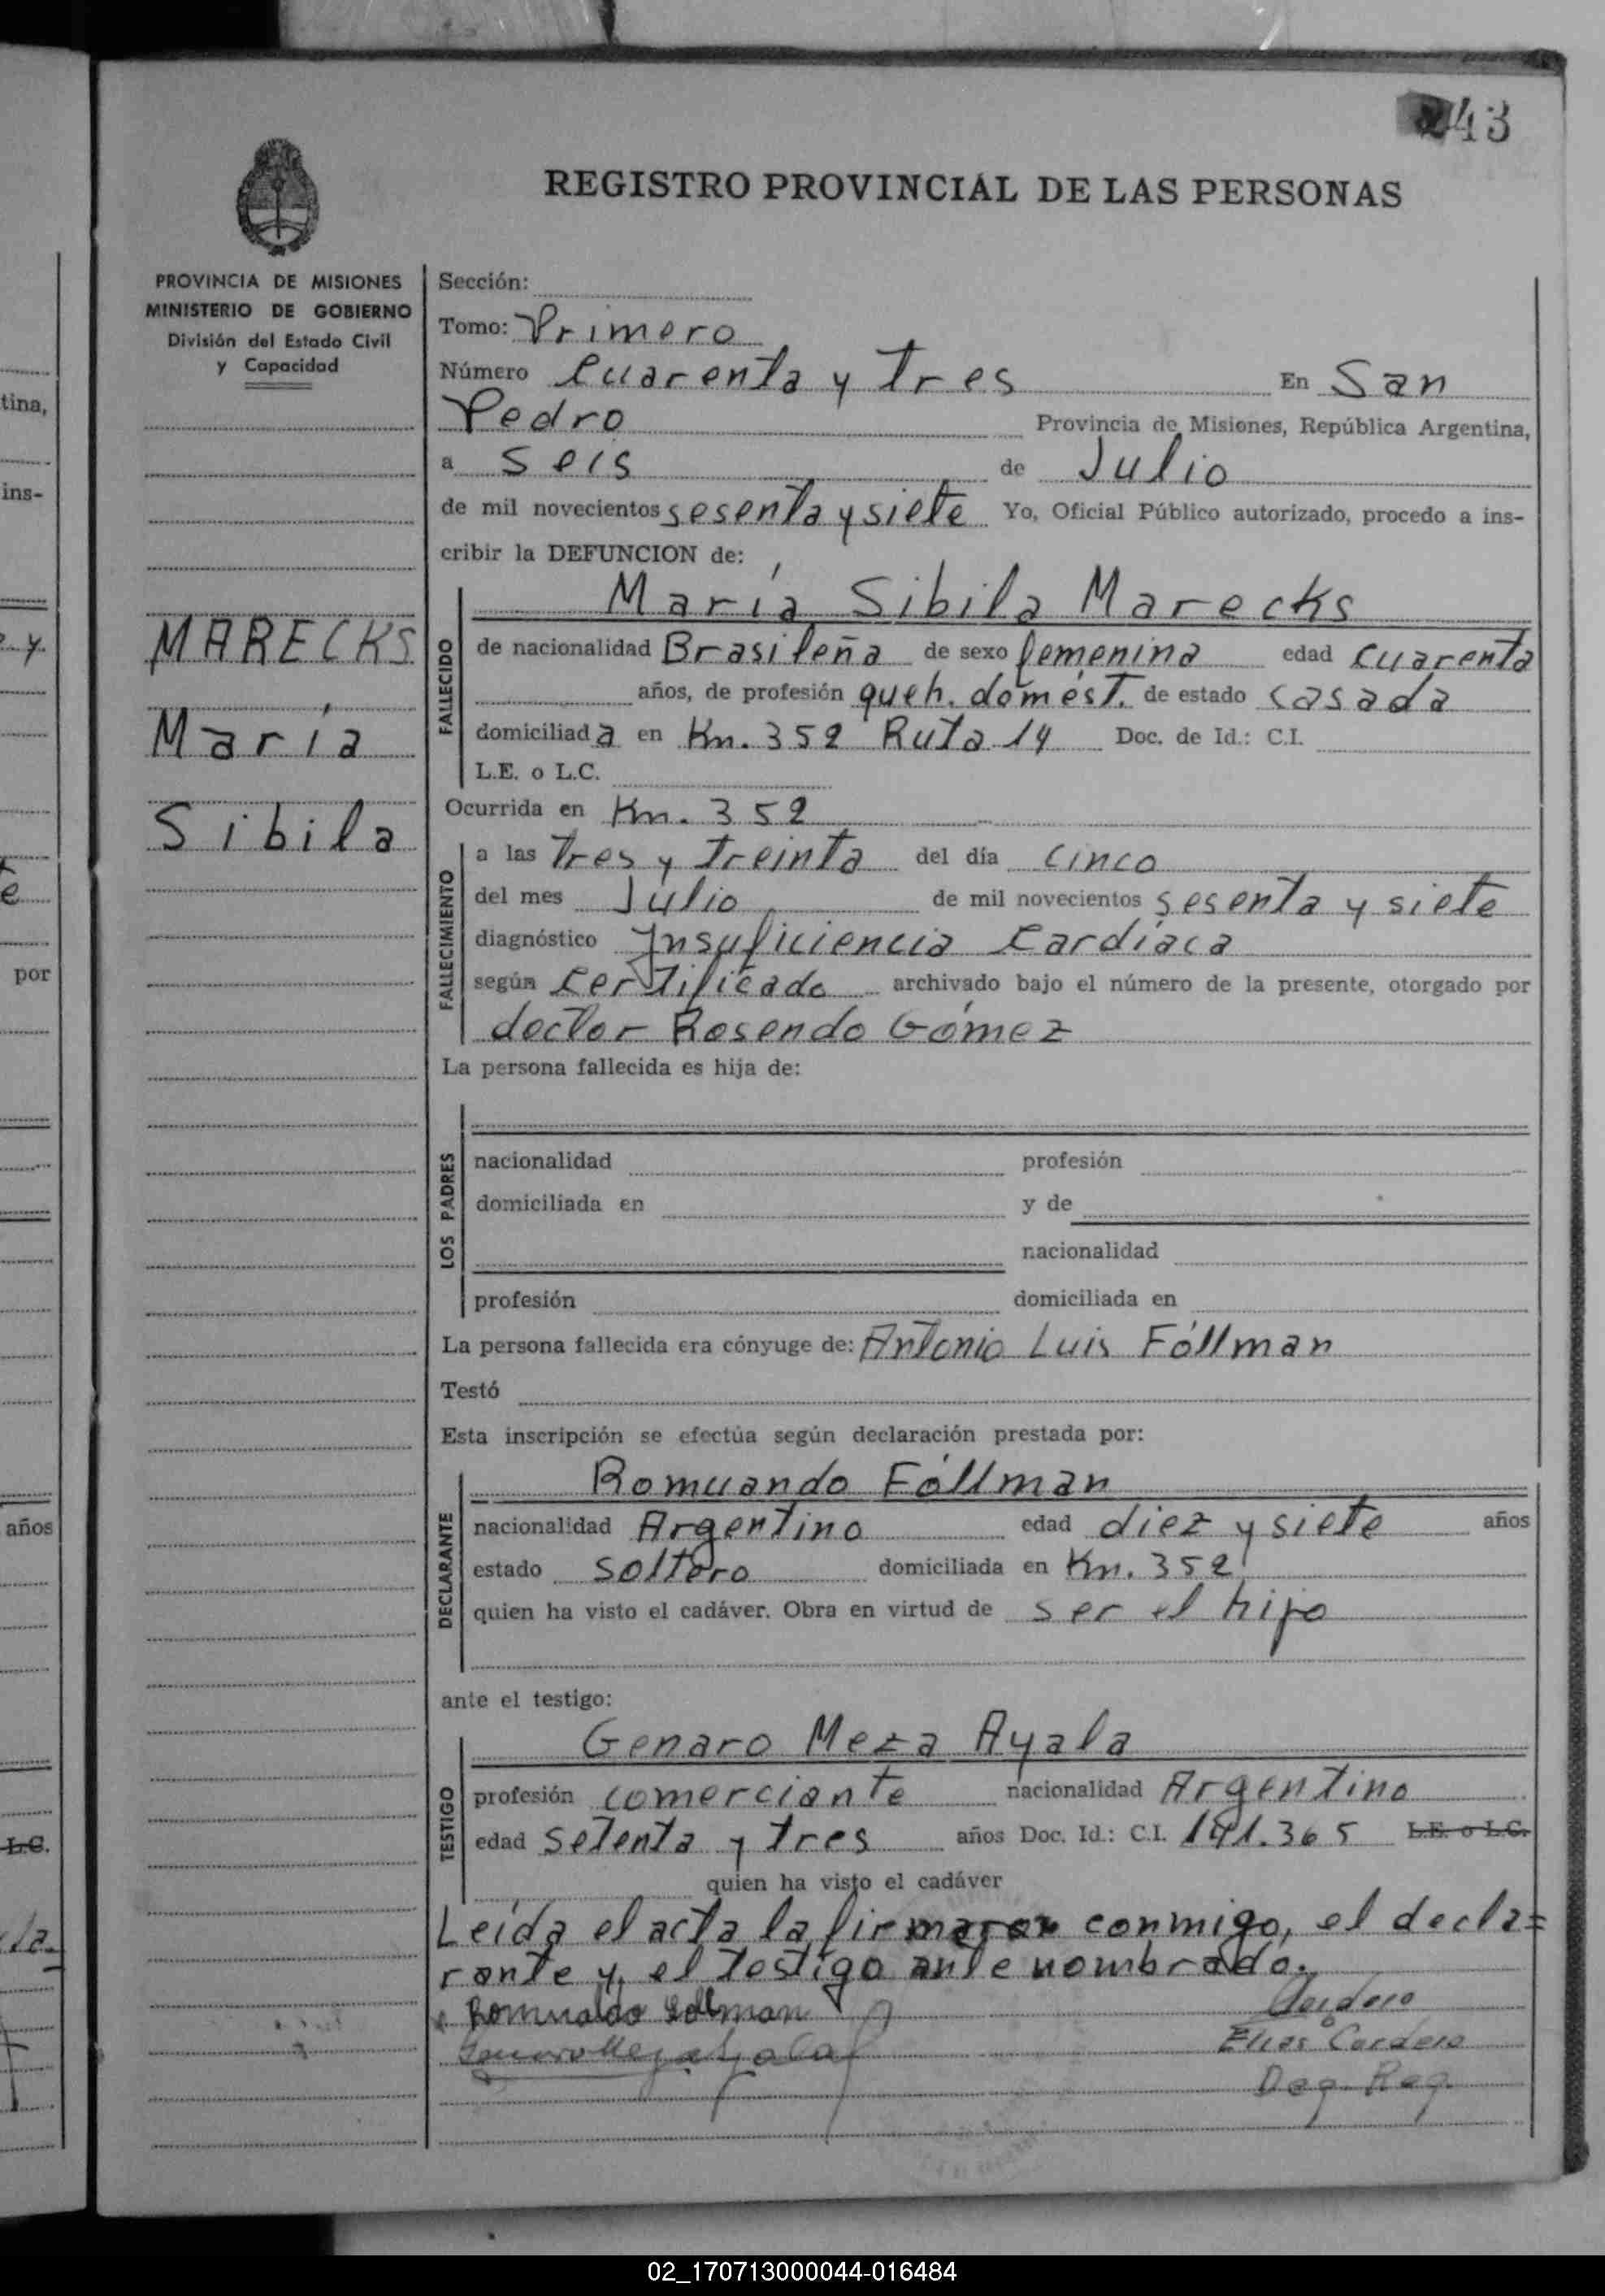 43
REGISTRO PROVINCIAL DE LAS PERSONAS
PROVINCIA DE MISIONES
MINISTERIO DE GOBIERNO
División del Estado Civil
y Capacidad
MARECKS
María
Sibila
Sección:
Tomo: Primero
Número Cuarenta y Tres En San
Pedro Provincia de Misiones, República Argentina,
a Seis de Julio
de mil novecientos sesenta y siete Yo, Oficial Público autorizado, procedo a ins-
cribir la DEFUNCION de:
FALLECIDO
María Sibila Marecks
de nacionalidad Brasileña de sexo femenina edad cuarenta
años, de profesión queh. domést. de estado casada
domiciliada en Km. 352 Ruta 14 Doc. de Id.: C.I.
L.E. o L.C.
Ocurrida en Km. 352
FALLECIMIENTO
a las Tres y Treinta del día cinco
del mes Julio de mil novecientos sesenta y siete
diagnóstico Insuficiencia Cardíaca
según Certificado archivado bajo el número de la presente, otorgado por
doctor Rosendo Gómez
La persona fallecida es hija de:
LOS PADRES
nacionalidad profesión
domiciliada en y de
nacionalidad
profesión domiciliada en
La persona fallecida era cónyuge de: Antonio Luis Fóllman
Testó
Esta inscripción se efectúa según declaración prestada por:
DECLARANTE
Romuando Fóllman
nacionalidad Argentino edad diez y siete años
estado soltero domiciliada en Km. 352
quien ha visto el cadáver. Obra en virtud de ser el hijo
ante el testigo:
TESTIGO
Genaro Meza Ayala
profesión comerciante nacionalidad Argentino
edad setenta y tres años Doc. Id.: C.I. 141.365 L.E. o L.C.
quien ha visto el cadáver
Leída el acta la firmaron conmigo, el decla=
rante y, el testigo ante nombrado.
Romualdo Follman Cordero
Genaro Meza Ayala Elias Cordero
Deg. Reg.
tina,
ins-
y
por
años
L.C.
02_170713000044-016484